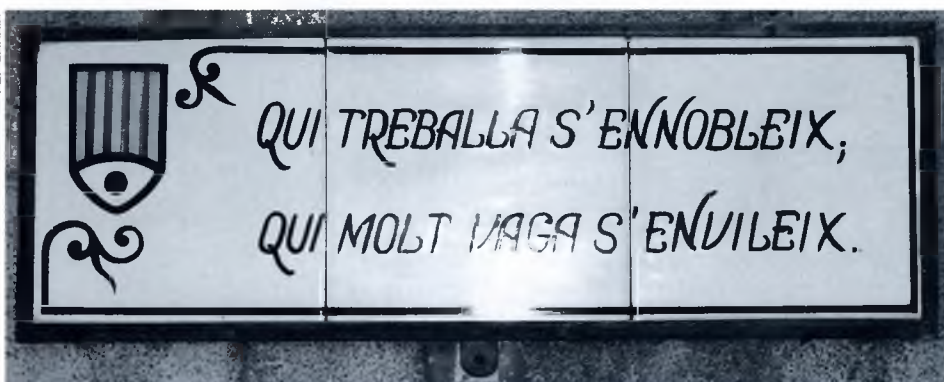 QUI TREBALLA S'ENNOBLEIX;
QUI MOLT VAGA S'ENVILEIX.